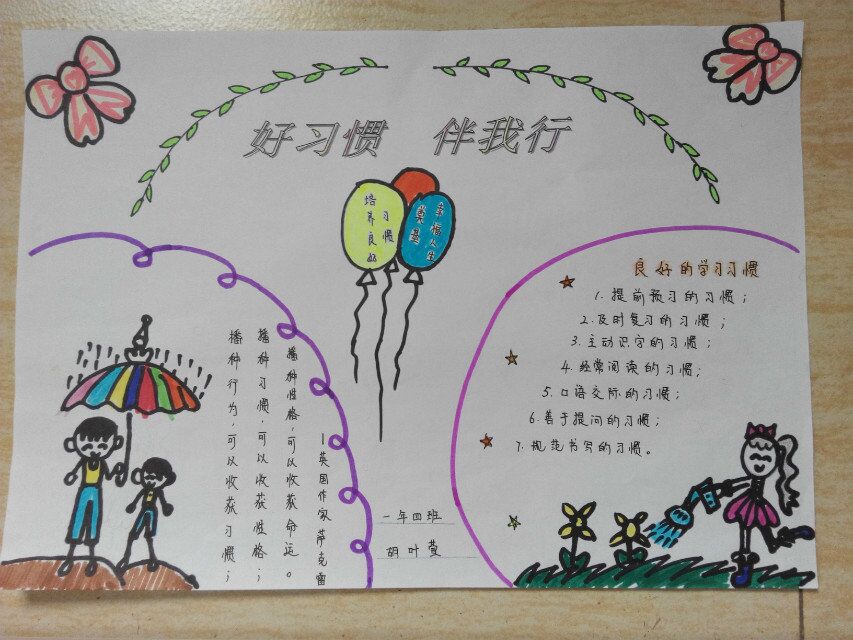 好习惯 伴我行
培养良好
习惯
奠基
幸福人生
播种行为，可以收获习惯；
播种习惯，可以收获性格；
播种性格，可以收获命运。
—英国作家萨克雷
一年四班
胡叶萱
良好的学习习惯
1.提前预习的习惯；
2.及时复习的习惯；
3.主动识字的习惯；
4.经常阅读的习惯；
5.口语交际的习惯；
6.善于提问的习惯；
7.规范书写的习惯。